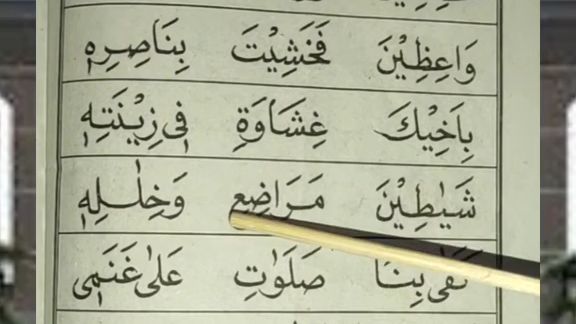 وَاعِظِيْنَ فَخَشِيْتَ بِنَاصِرِهٖ
بِاَخِيْكَ غِشَاوَةِ فِيْ زِيْنَتِهٖ
شَيٰطِيْنَ مَرَاضِعِ وَخِلٰلِهٖ
بِنَا صَلَوٰتِ عَلٰى غَنَمِيْ